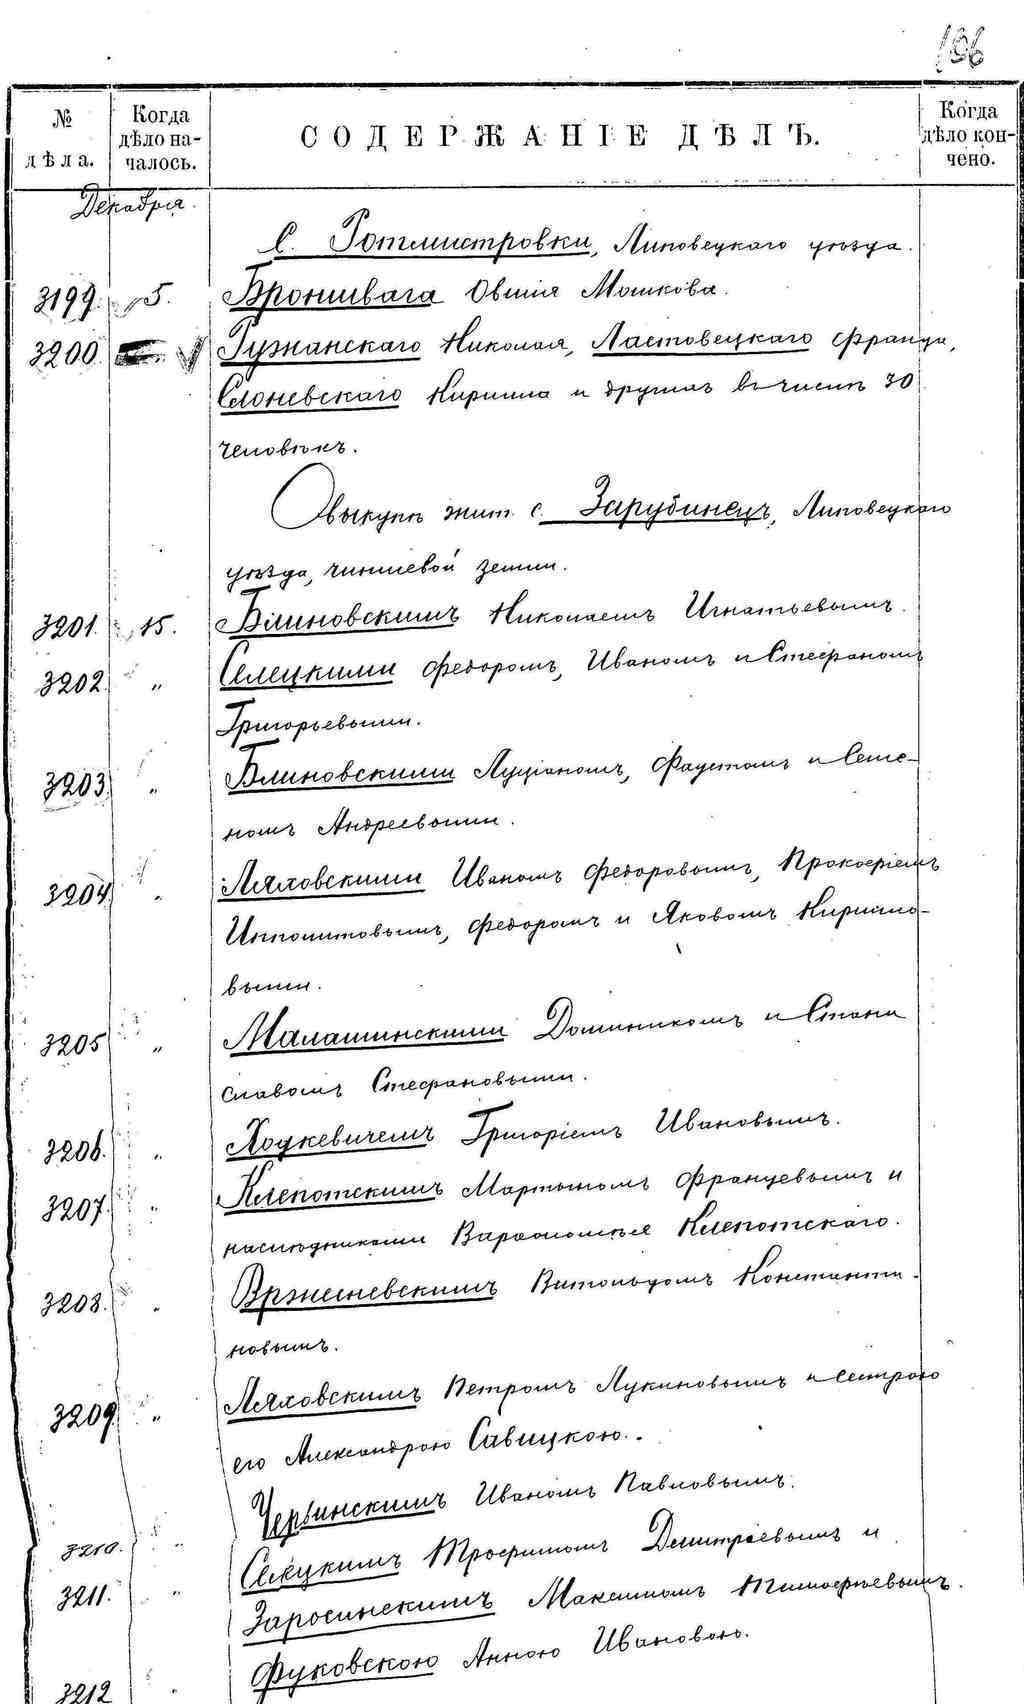 186
№ дѣла.
Когда дѣло началось.
СОДЕРЖАНІЕ ДѢЛЪ.
Когда дѣло кончено.
Декабря.
С. Ротмистровки, Липовецкаго уѣзда.
3199. 5. Бронштвага Овшія Мошкова.
3200. Ружанскаго Николая, Ластовецкаго Франца,
Слоневскаго Кирилла и другихъ въ числѣ 30
человѣкъ.
О выкупѣ жит. с. Зарубинецъ, Липовецкаго
уѣзда, чиншевой земли.
3201. 15. Блиновскимъ Николаемъ Игнатьевымъ.
3202. „ Селецкими Федоромъ, Иваномъ и Стефаномъ
Григорьевыми.
3203. „ Блиновскими Луціаномъ, Фаустомъ и Семе-
номъ Андреевыми.
3204. „ Ляховскими Иваномъ Федоровымъ, Прокофіемъ
Ипполитовымъ, Федоромъ и Яковомъ Кирилло-
выми.
3205. „ Малашинскими Доминикомъ и Стани
славомъ Стефановыми.
3206. „ Ходкевичемъ Григоріемъ Ивановымъ.
3207. „ Клепотскимъ Мартыномъ Францевымъ и
наслѣдниками Варфоломѣя Клепотскаго.
3208. „ Вржешевскимъ Витольдомъ Константи-
новымъ.
3209. „ Ляховскимъ Петромъ Лукиновымъ и сестрою
его Александрою Савицкою.
Червинскимъ Иваномъ Павловымъ.
3210. „ Селецкимъ Трофимомъ Дмитріевымъ и
3211. „ Заросинскимъ Максимомъ Тимофѣевымъ.
3212 „ Фуковскою Анною Ивановою.